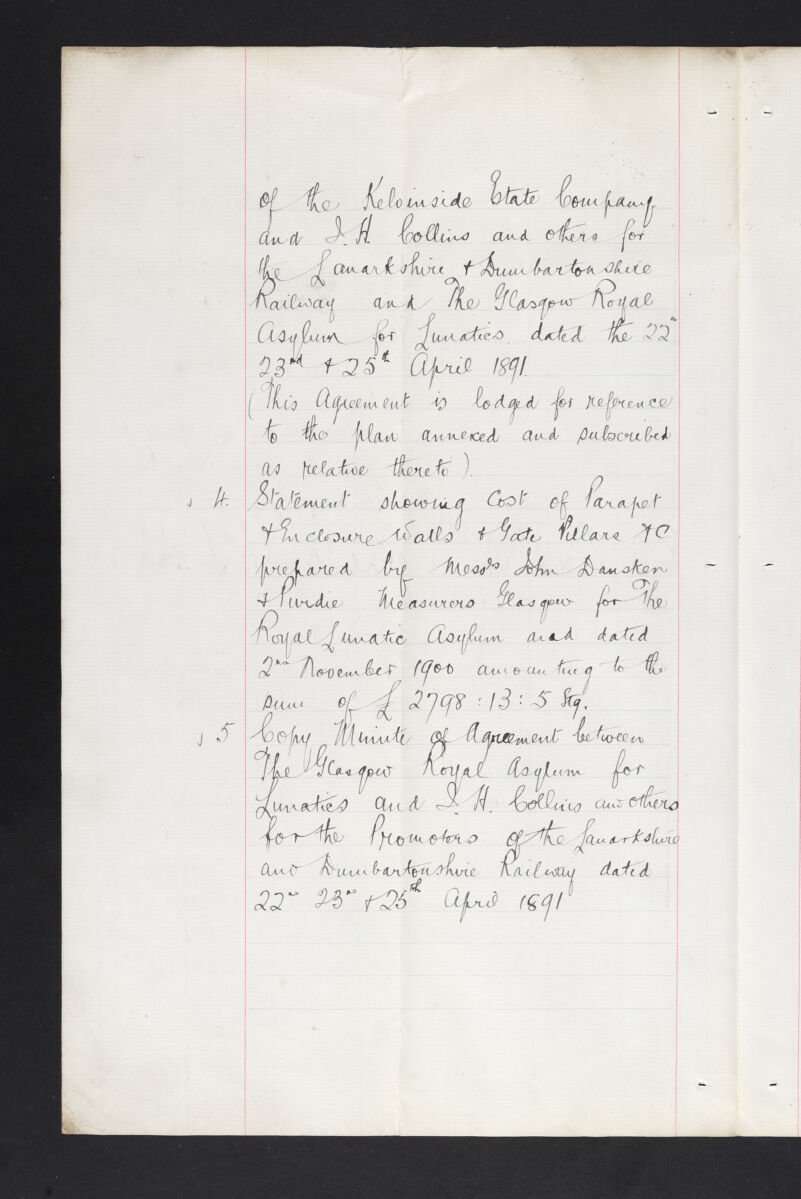 of the Kelvinside Estate Company
and J. H. Collins and others for
the Lanarkshire & Dumbartonshire
Railway and The Glasgow Royal
Asylum for Lunatics. dated the 22ⁿ
23ʳᵈ & 25ᵗʰ April 1891.
(This Agreement is lodged for reference
to the plan annexed and subscribed
as relative thereto).
4. Statement showing Cost of Parapet
& Enclosure Walls & Gate Pillars &C
prepared by Messʳˢ John Dansken
& Purdie Measurers Glasgow for The
Royal Lunatic Asylum and dated
2ⁿᵈ November 1900 amounting to the
sum of £ 2798 : 13 : 5 Stg.
5 Copy Minute of Agreement between
The Glasgow Royal Asylum for
Lunatics and J. H. Collins and others
for the Promotors of the Lanarkshire
and Dumbartonshire Railway dated
22ⁿᵈ 23ʳᵈ & 25ᵗʰ April 1891